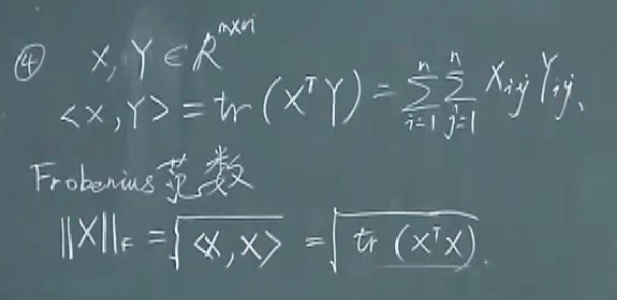 ④ X, Y ∈ R^{m×n}
<X, Y> = tr (X^T Y) = \sum_{i=1}^{n} \sum_{j=1}^{n} X_{ij} Y_{ij}
Frobenius 范数
||X||_F = \sqrt{<X, X>} = \sqrt{tr (X^T X)}.